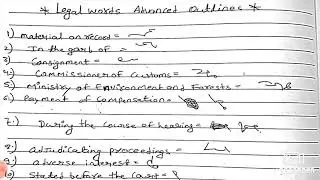 * Legal words Advanced Outlines *
1.) material on record =
2.) In the garb of =
3.) Consignment =
4.) Commissioner of customs =
5.) Ministry of Environment and Forests =
6.) Payment of Compensation =
7.) During the Course of hearing =
8.) adjudicating proceedings =
9.) adverse interest =
10) Stated before the Court =